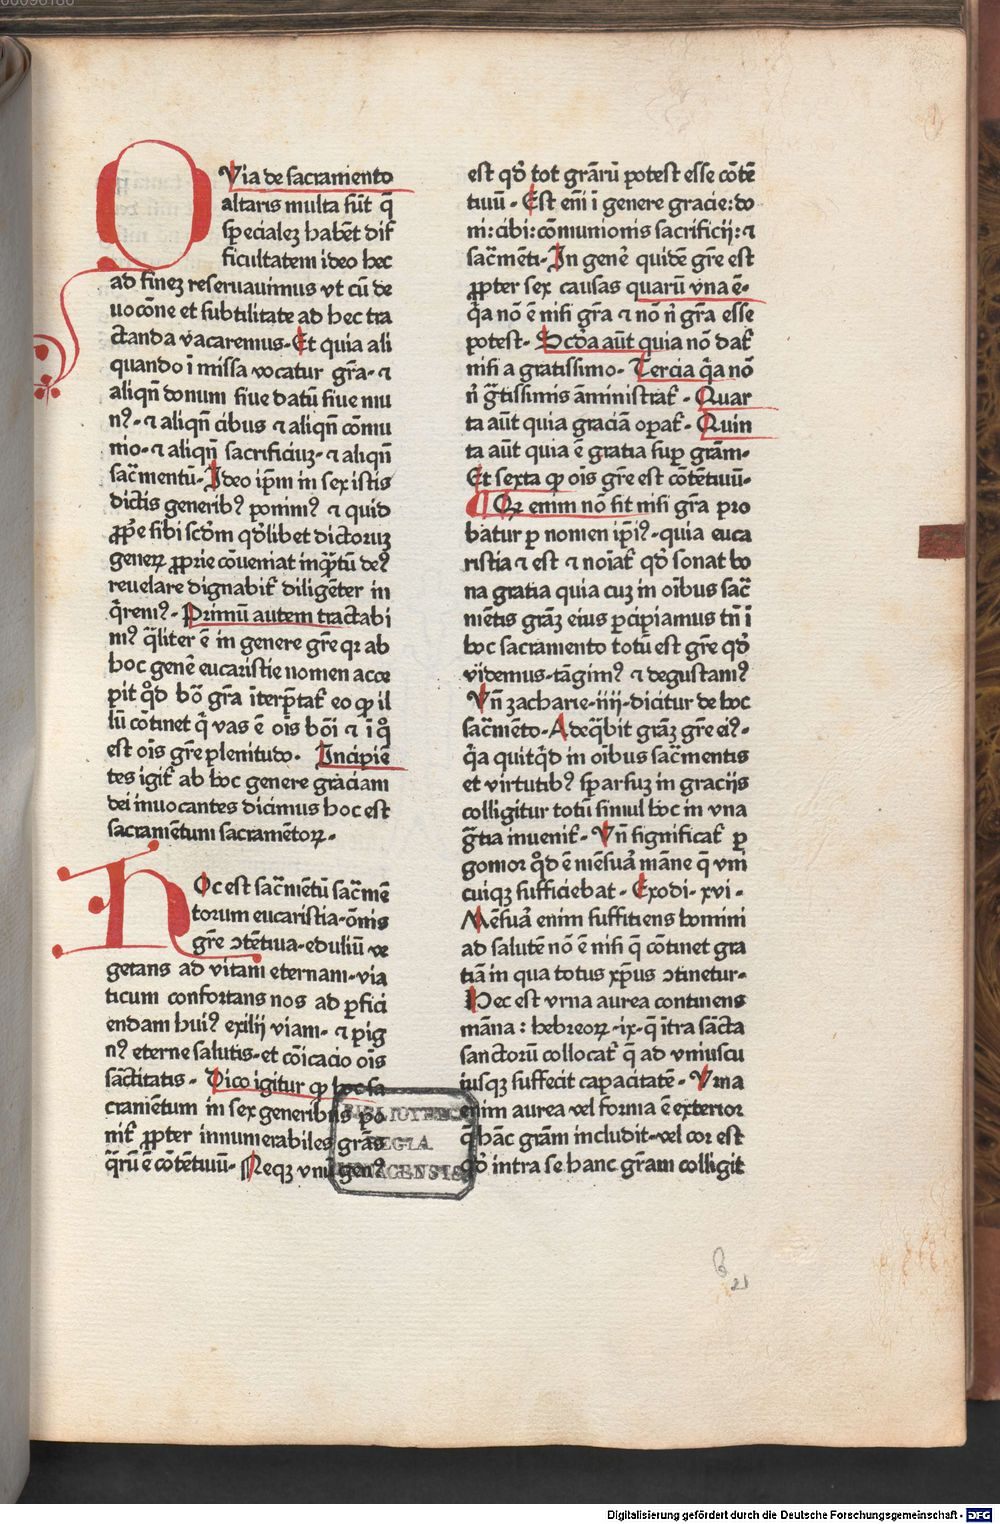 QVia de sacramento
altaris multa sūt q̄
specialez habēt dif
ficultatem ideo hec
ad finez reseruauimus vt cū de
uocōne et subtilitate ad hec tra
ctanda vacaremus. Et quia ali
quando ī missa vocatur gr̄a. ⁊
aliqn̄ donum siue datū siue mu
nꝰ. ⁊ aliqn̄ cibus ⁊ aliqn̄ cōmu
nio. ⁊ aliqn̄ sacrificiuz. ⁊ aliqn̄
sac̄mentū. Ideo ip̄m in sex istis
dictis generibꝰ ponimꝰ ⁊ quid
ꝓp̄e sibi scd̄m qd̓libet dictoruz
generꝝ ꝓprie cōueniat inqꝫtū deꝰ
reuelare dignabit᷑ diligēter in
q̄remꝰ. Primū autem tractabi
mꝰ q̄liter ē in genere gr̄e qꝛ ab
hoc genē eucaristie nomen acce
pit qd̓ bō gr̄a īterp̄tat᷑ eo ꝙ il
lū cōtinet q̄ vas ē oīs bōi ⁊ ī qͦ
est oīs gr̄e plenitudo. Incipiē
tes igit᷑ ab hoc genere graciam
dei inuocantes dicimus hoc est
sacramētum sacramētoꝝ.
HOc est sac̄mētū sac̄mē
torum eucaristia. ōnis
gr̄e ↄtētiua. eduliū ve
getans ad vitam eternam. via
ticum confortans nos ad ꝑfici
endam huiꝰ exilij viam. ⁊ pig
nꝰ eterne salutis. et cōicacio oīs
sāctitatis. Dico igitur ꝙ hoc sa
cramētum in sex generibus po
nit᷑ ꝓpter innumerabiles gr̄as
q̄rū ē cōtētiuū. Neqꝫ vnū genꝰ
est qd̓ tot gr̄arū potest esse cōtē
tiuū. Est em̄ ī genere gracie: do
ni: cibi: cōmunionis sacrificij: ⁊
sac̄mēti. In genē quidē gr̄e est
ꝓpter sex causas quarū vna ē.
q̄a nō ē nisi gr̄a ⁊ nō n̄ gr̄a esse
potest. Scd̓a aūt quia nō dat᷑
nisi a gratissimo. Tercia q̄a nō
n̄ gͣtissimis āministrat᷑. Quar
ta aūt quia graciā oꝑat᷑. Quin
ta aūt quia ē gratia suꝑ grām.
Et sexta ꝙ oīs gr̄e est cōtētiuū.
¶ Qꝛ enim nō sit nisi gr̄a pro
batur ꝑ nomen ip̄iꝰ. quia euca
ristia ⁊ est ⁊ noīat᷑ qd̓ sonat bo
na gratia quia cuz in oībus sac̄
mētis grāz eius ꝑcipiamus tn̄ ī
hoc sacramento totū est gr̄e qd̓
videmus. tāgimꝰ ⁊ degustamꝰ
Vn̄ zacharie. iiij. dicitur de hoc
sac̄mēto. Adeq̄bit grāz gr̄e eiꝰ.
q̄a quitq̄d in oībus sac̄mentis
et virtutibꝰ sparsuz in gracijs
colligitur totū simul hoc in vna
gͣtia inuenit᷑. Vn̄ significat᷑ ꝑ
gomor qd̓ ē mēsura māne q̄ vni
cuiqꝫ sufficiebat. Exodi. xvi.
Mēsura enim suffitiens homini
ad salutē nō ē nisi q̄ cōtinet gra
tiā in qua totus xp̄us ↄtinetur.
Hec est vrna aurea continens
māna: hebreoꝝ. ix. q̄ ītra sācta
sanctorū collocat᷑ q̄ ad vniuscu
iusqꝫ suffecit capacitatē. Vrna
enim aurea vel forma ē exterior
q̄ hāc grām includit. vel cor est
qd̓ intra se hanc gr̄am colligit
BIBLIOTHECA
REGIA
MONACENSIS
21
Digitalisierung gefördert durch die Deutsche Forschungsgemeinschaft - DFG